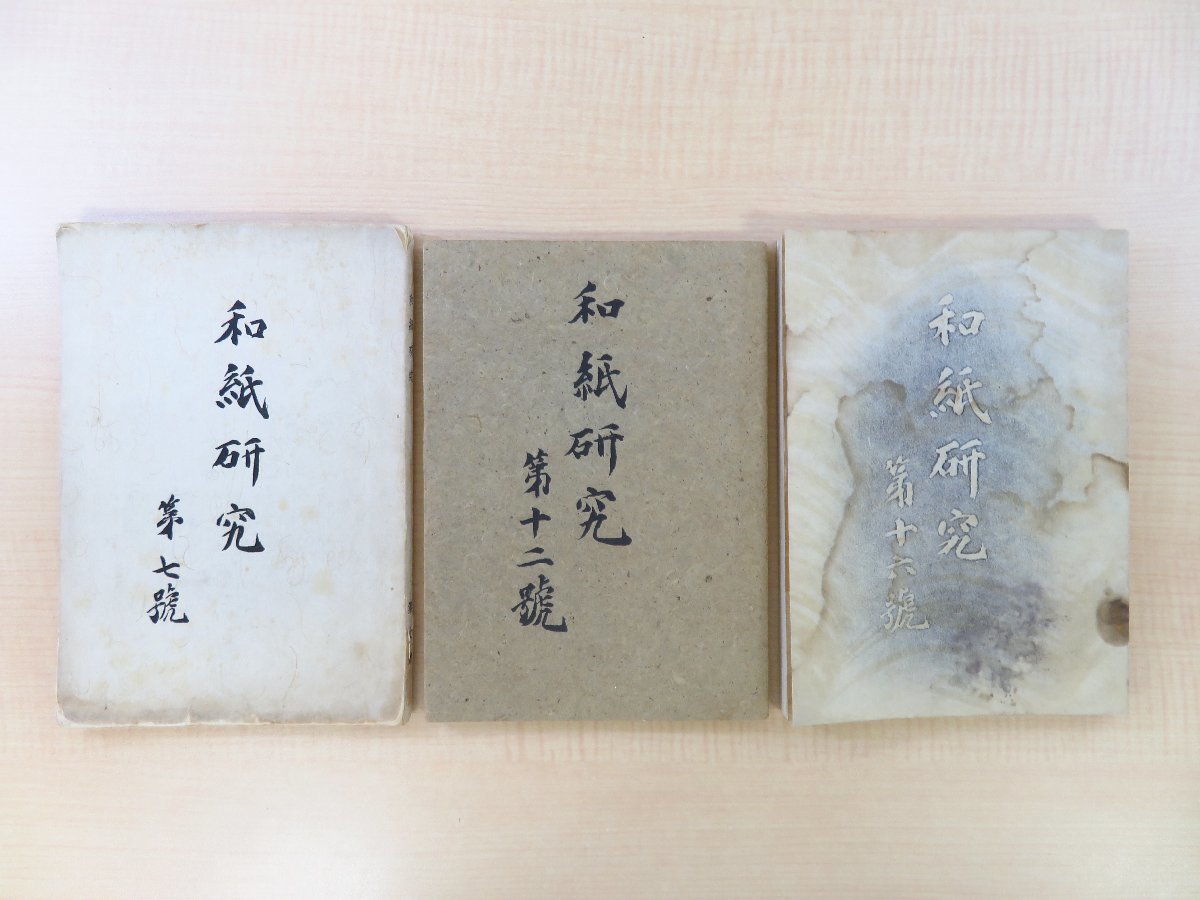 和紙研究
第七號
和紙研究
第十二號
和紙研究
第十六號